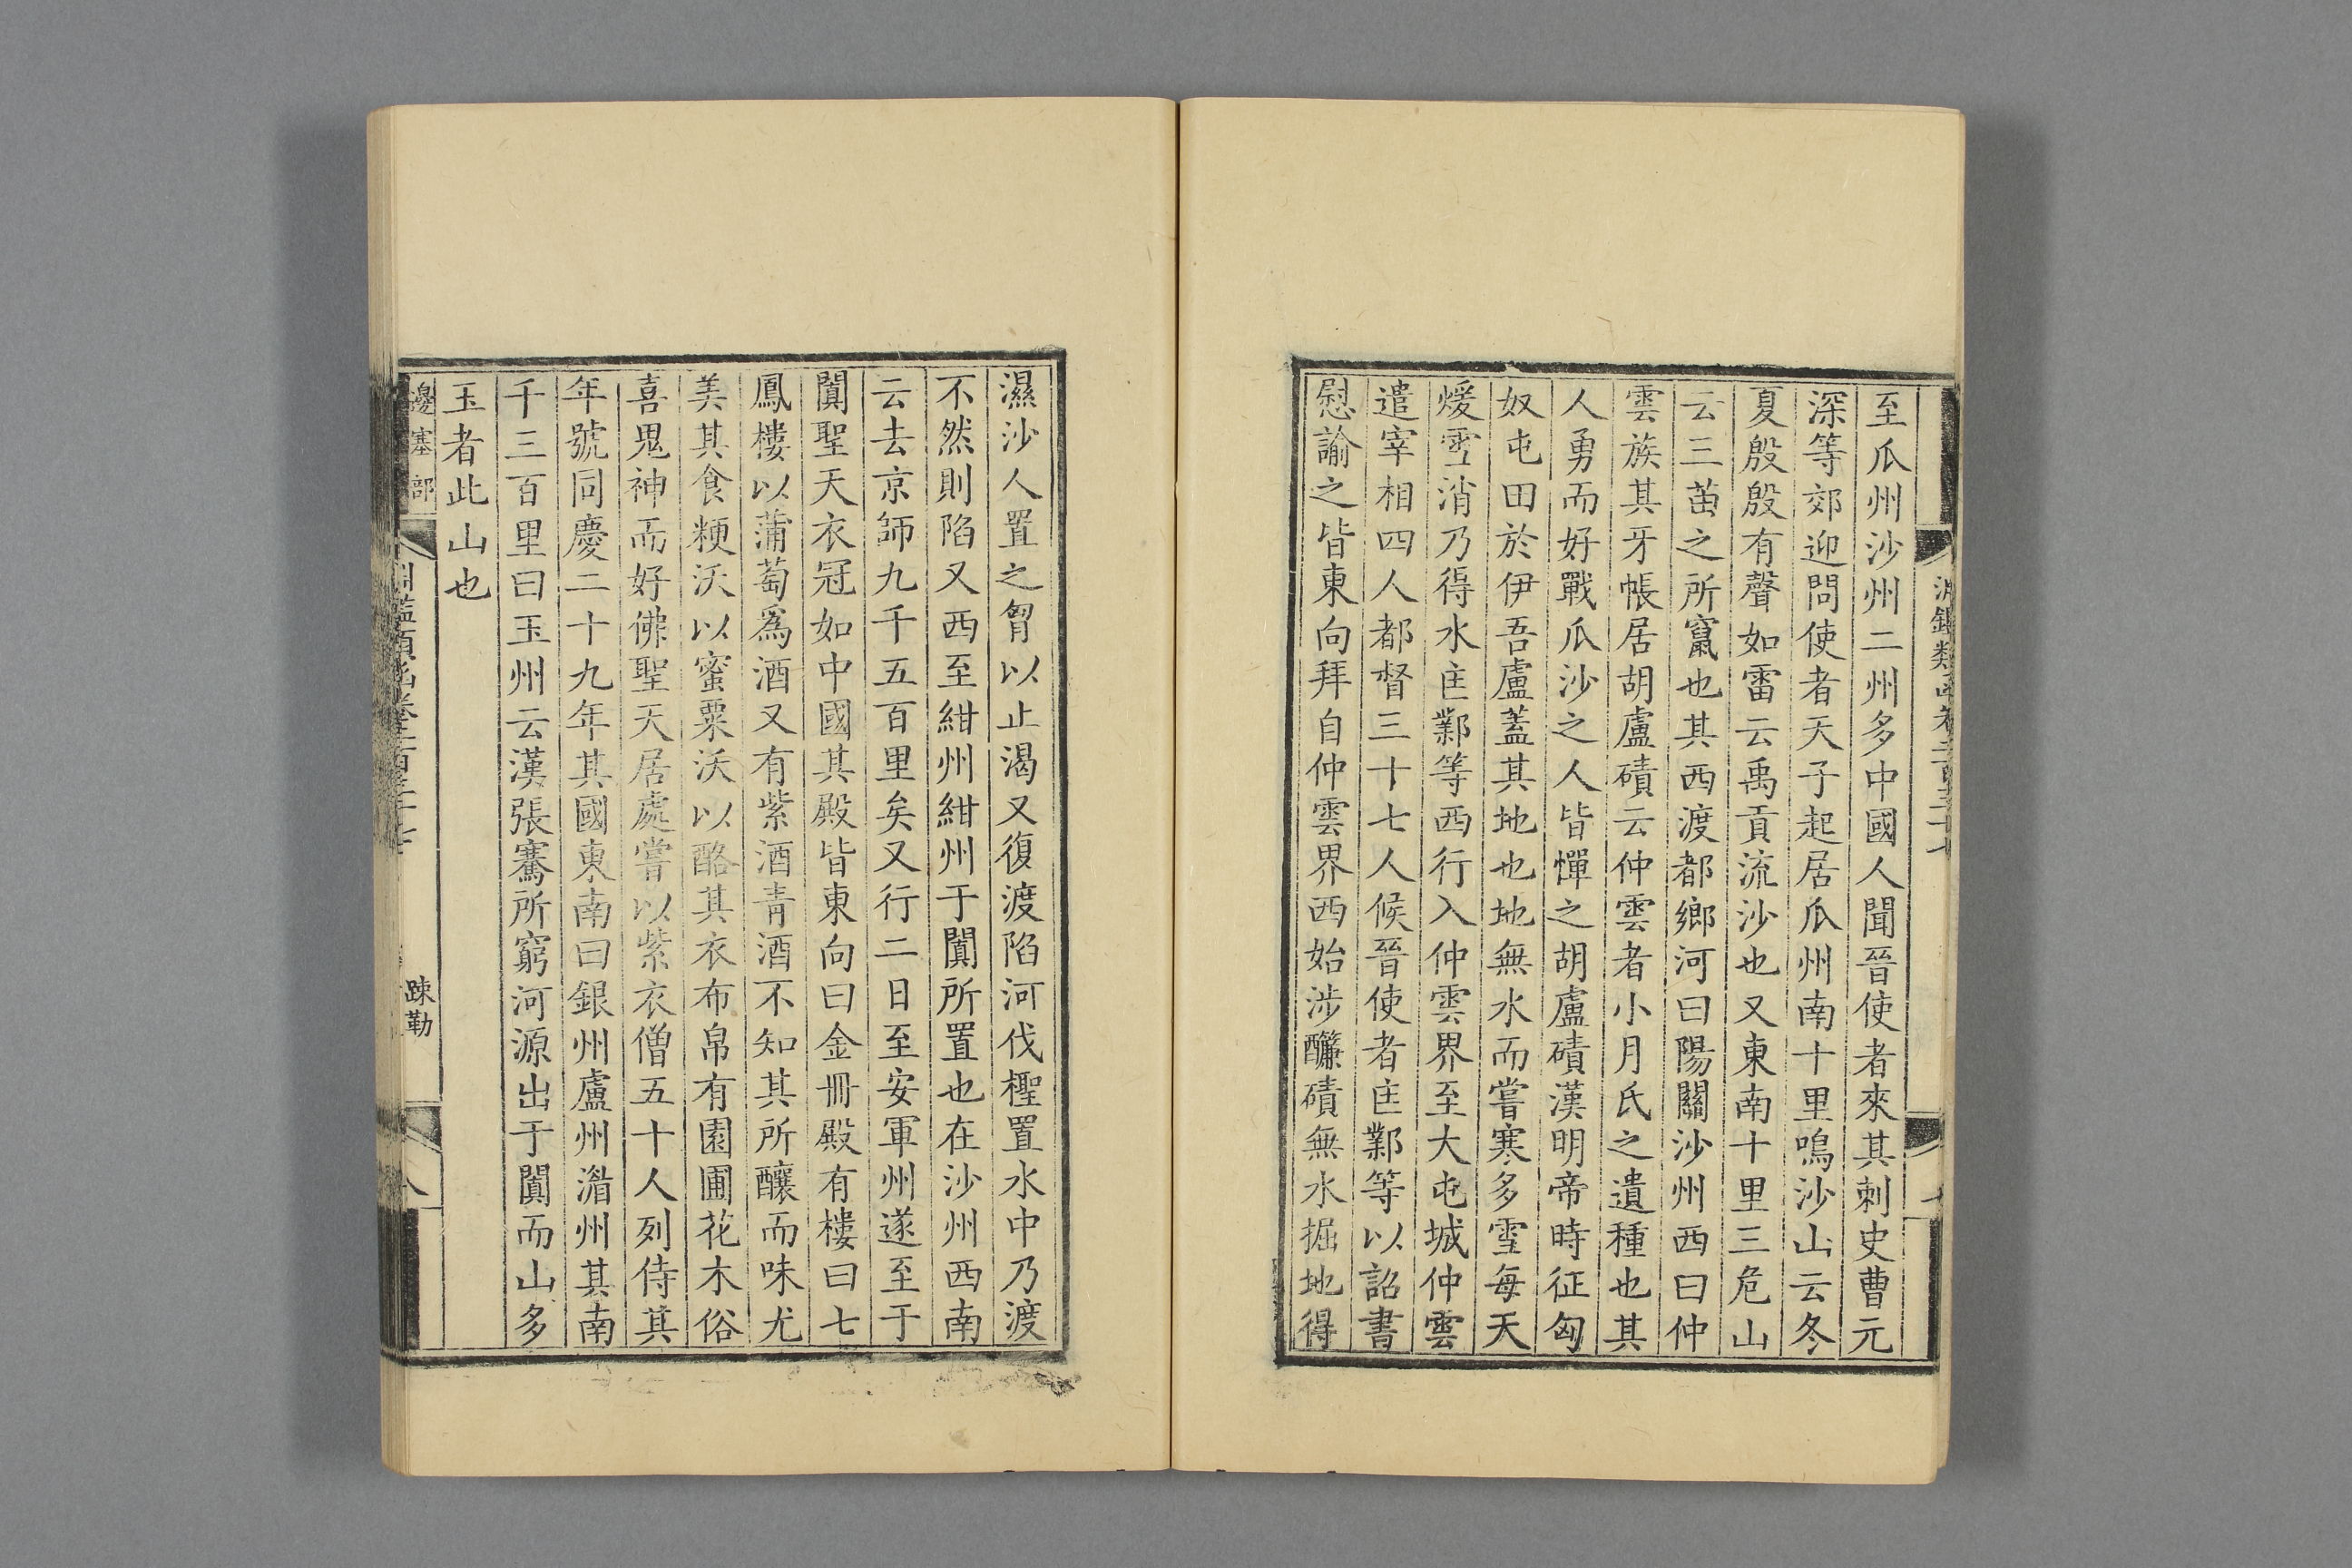 至瓜州沙州二州多中國人聞晉使者來其刺史曹元
深等郊迎問使者天子起居瓜州南十里鳴沙山云冬
夏殷殷有聲如雷云禹貢流沙也又東南十里三危山
云三苗之所竄也其西渡都鄉河曰陽關沙州西曰仲
雲族其牙帳居胡盧磧云仲雲者小月氏之遺種也其
人勇而好戰瓜沙之人皆憚之胡盧磧漢明帝時征匈
奴屯田於伊吾盧蓋其地也地無水而嘗寒多雪每天
煖雪消乃得水匡鄴等西行入仲雲界至大屯城仲雲
遣宰相四人都督三十七人候晉使者匡鄴等以詔書
慰諭之皆東向拜自仲雲界西始涉䤘磧無水掘地得
濕沙人置之胷以止渴又復渡陷河伐檉置水中乃渡
不然則陷又西至紺州紺州于闐所置也在沙州西南
云去京師九千五百里矣又行二日至安軍州遂至于
闐聖天衣冠如中國其殿皆東向曰金冊殿有樓曰七
鳳樓以蒲萄爲酒又有紫酒青酒不知其所釀而味尤
美其食粳沃以蜜粟沃以酪其衣布帛有園圃花木俗
喜鬼神而好佛聖天居處嘗以紫衣僧五十人列侍其
年號同慶二十九年其國東南曰銀州盧州湄州其南
千三百里曰玉州云漢張騫所窮河源出于闐而山多
玉者此山也
邊塞部
疎勒
八